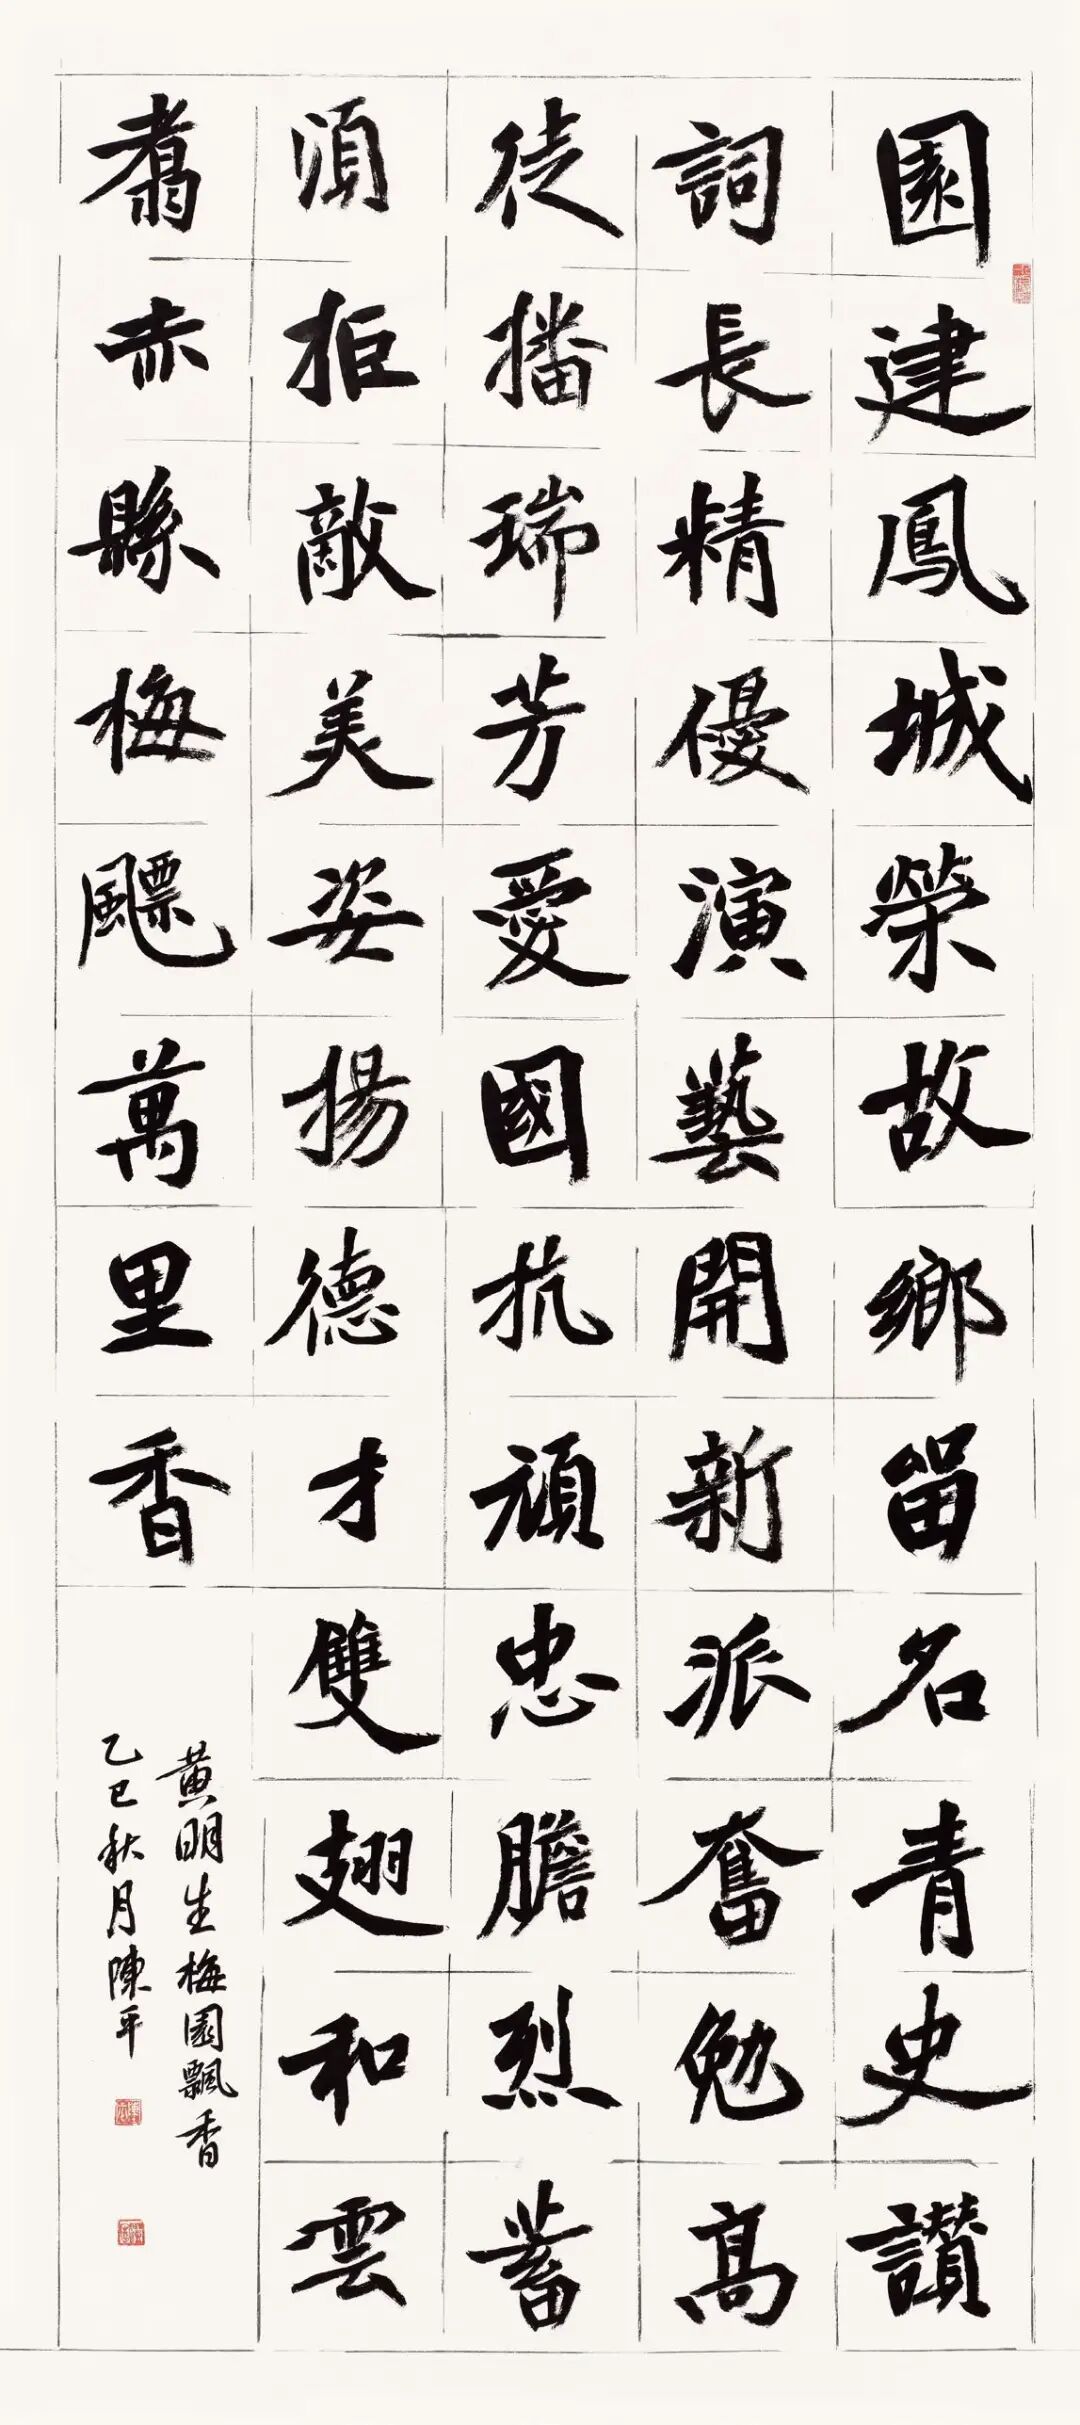 園建鳳城榮故鄉留名青史讚
詞長精優演藝開新派奮勉高
徒播瑞芳愛國抗頑忠膽烈蓄
須拒敵美姿揚德才雙翅和雲
翥赤縣梅飄萬里香
黄明生梅園飄香
乙巳秋月陳平